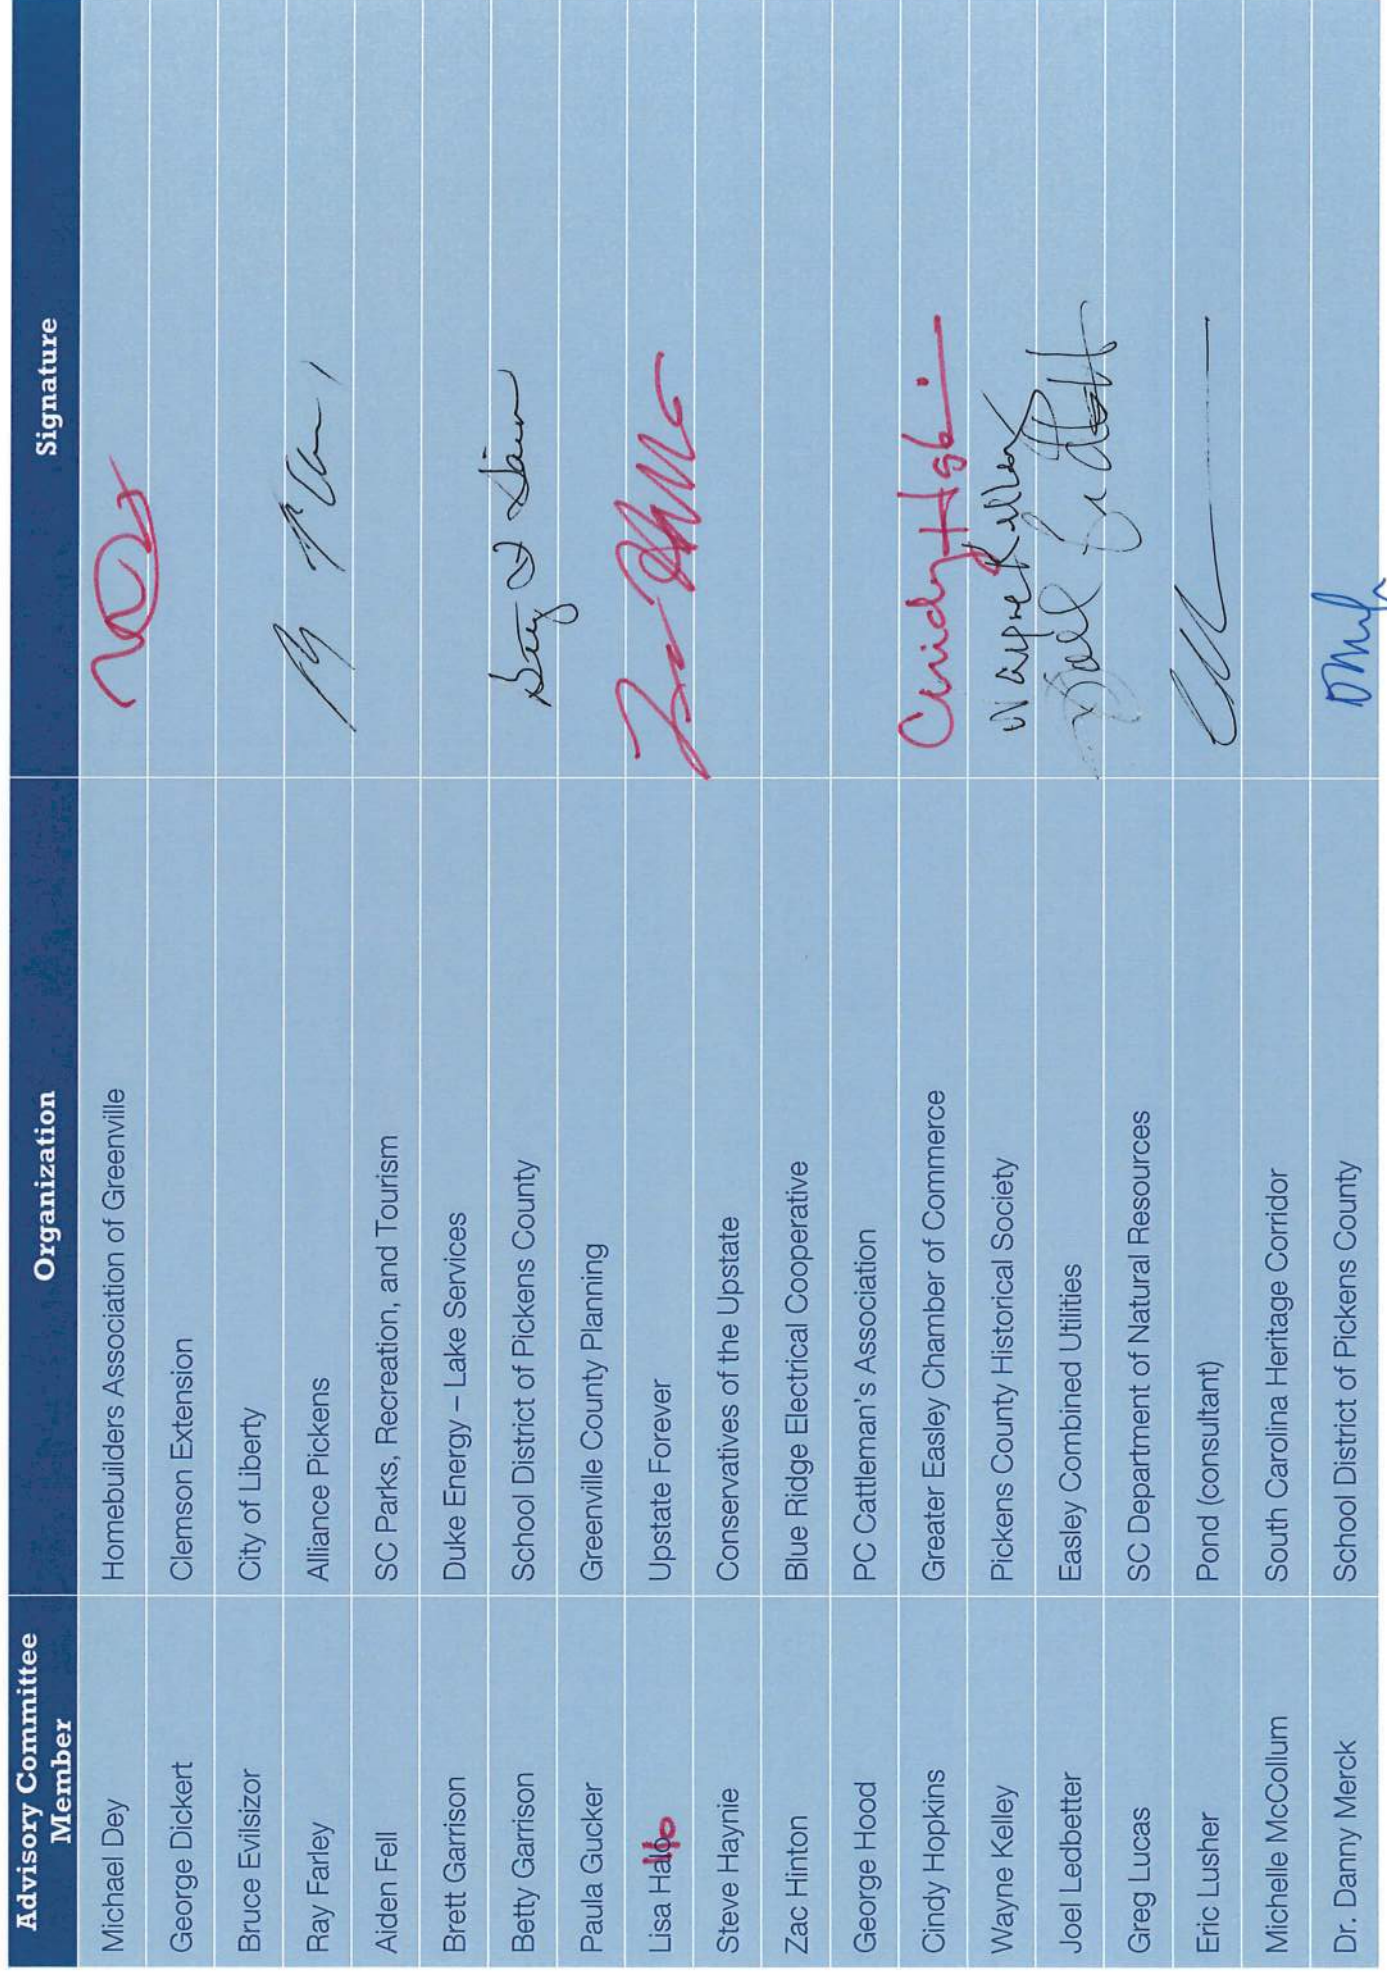 Advisory Committee Member Organization Signature
Michael Dey Homebuilders Association of Greenville
George Dickert Clemson Extension
Bruce Evilsizor City of Liberty
Ray Farley Alliance Pickens
Aiden Fell SC Parks, Recreation, and Tourism
Brett Garrison Duke Energy – Lake Services
Betty Garrison School District of Pickens County
Paula Gucker Greenville County Planning
Lisa Upstate Forever
Steve Haynie Conservatives of the Upstate
Zac Hinton Blue Ridge Electrical Cooperative
George Hood PC Cattleman's Association
Cindy Hopkins Greater Easley Chamber of Commerce Cindy
Wayne Kelley Pickens County Historical Society Wayne Kelley
Joel Ledbetter Easley Combined Utilities Joel Ledbetter
Greg Lucas SC Department of Natural Resources
Eric Lusher Pond (consultant)
Michelle McCollum South Carolina Heritage Corridor
Dr. Danny Merck School District of Pickens County